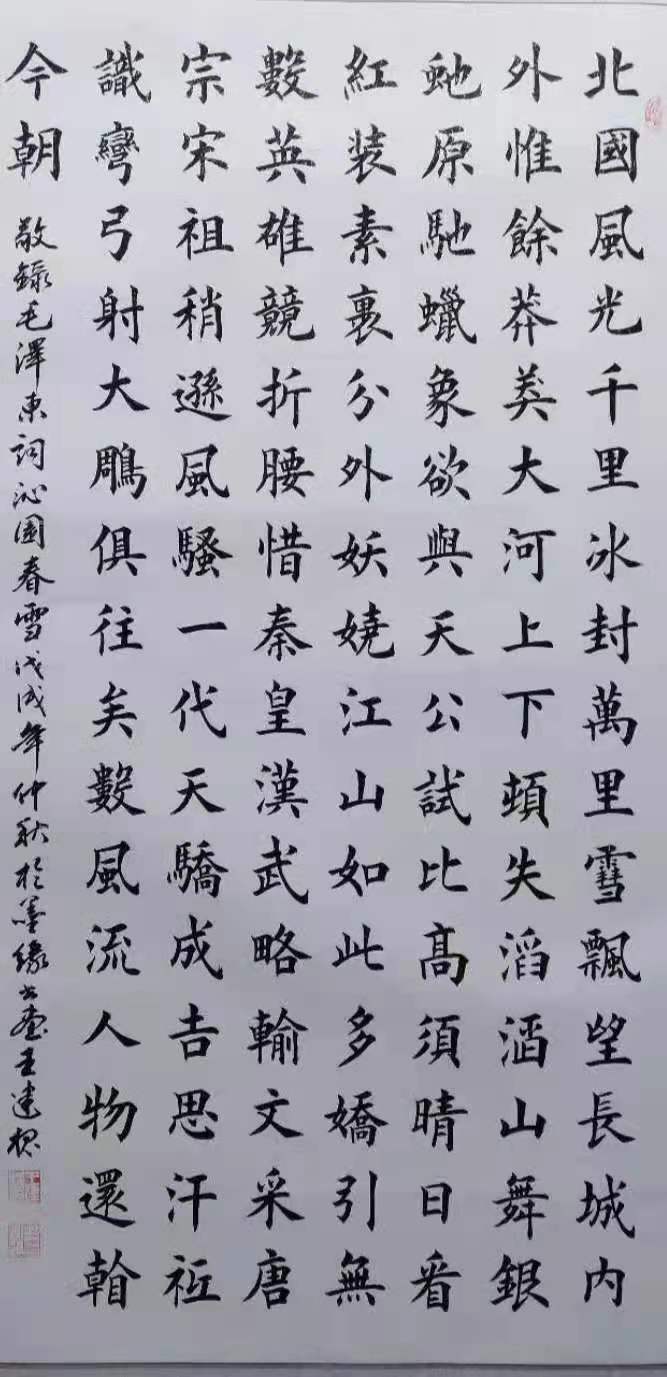 北國風光千里冰封萬里雪飄望長城内
外惟餘莽莽大河上下頓失滔滔山舞銀
虵原馳蠟象欲與天公試比髙須晴日看
紅裝素裹分外妖嬈江山如此多嬌引無
數英雄競折腰惜秦皇漢武略輸文采唐
宗宋祖稍遜風騷一代天驕成吉思汗祗
識彎弓射大鵰俱往矣數風流人物還看
今朝
敬錄毛澤東詞沁園春雪戊戌年仲秋於墨緣書畫王建